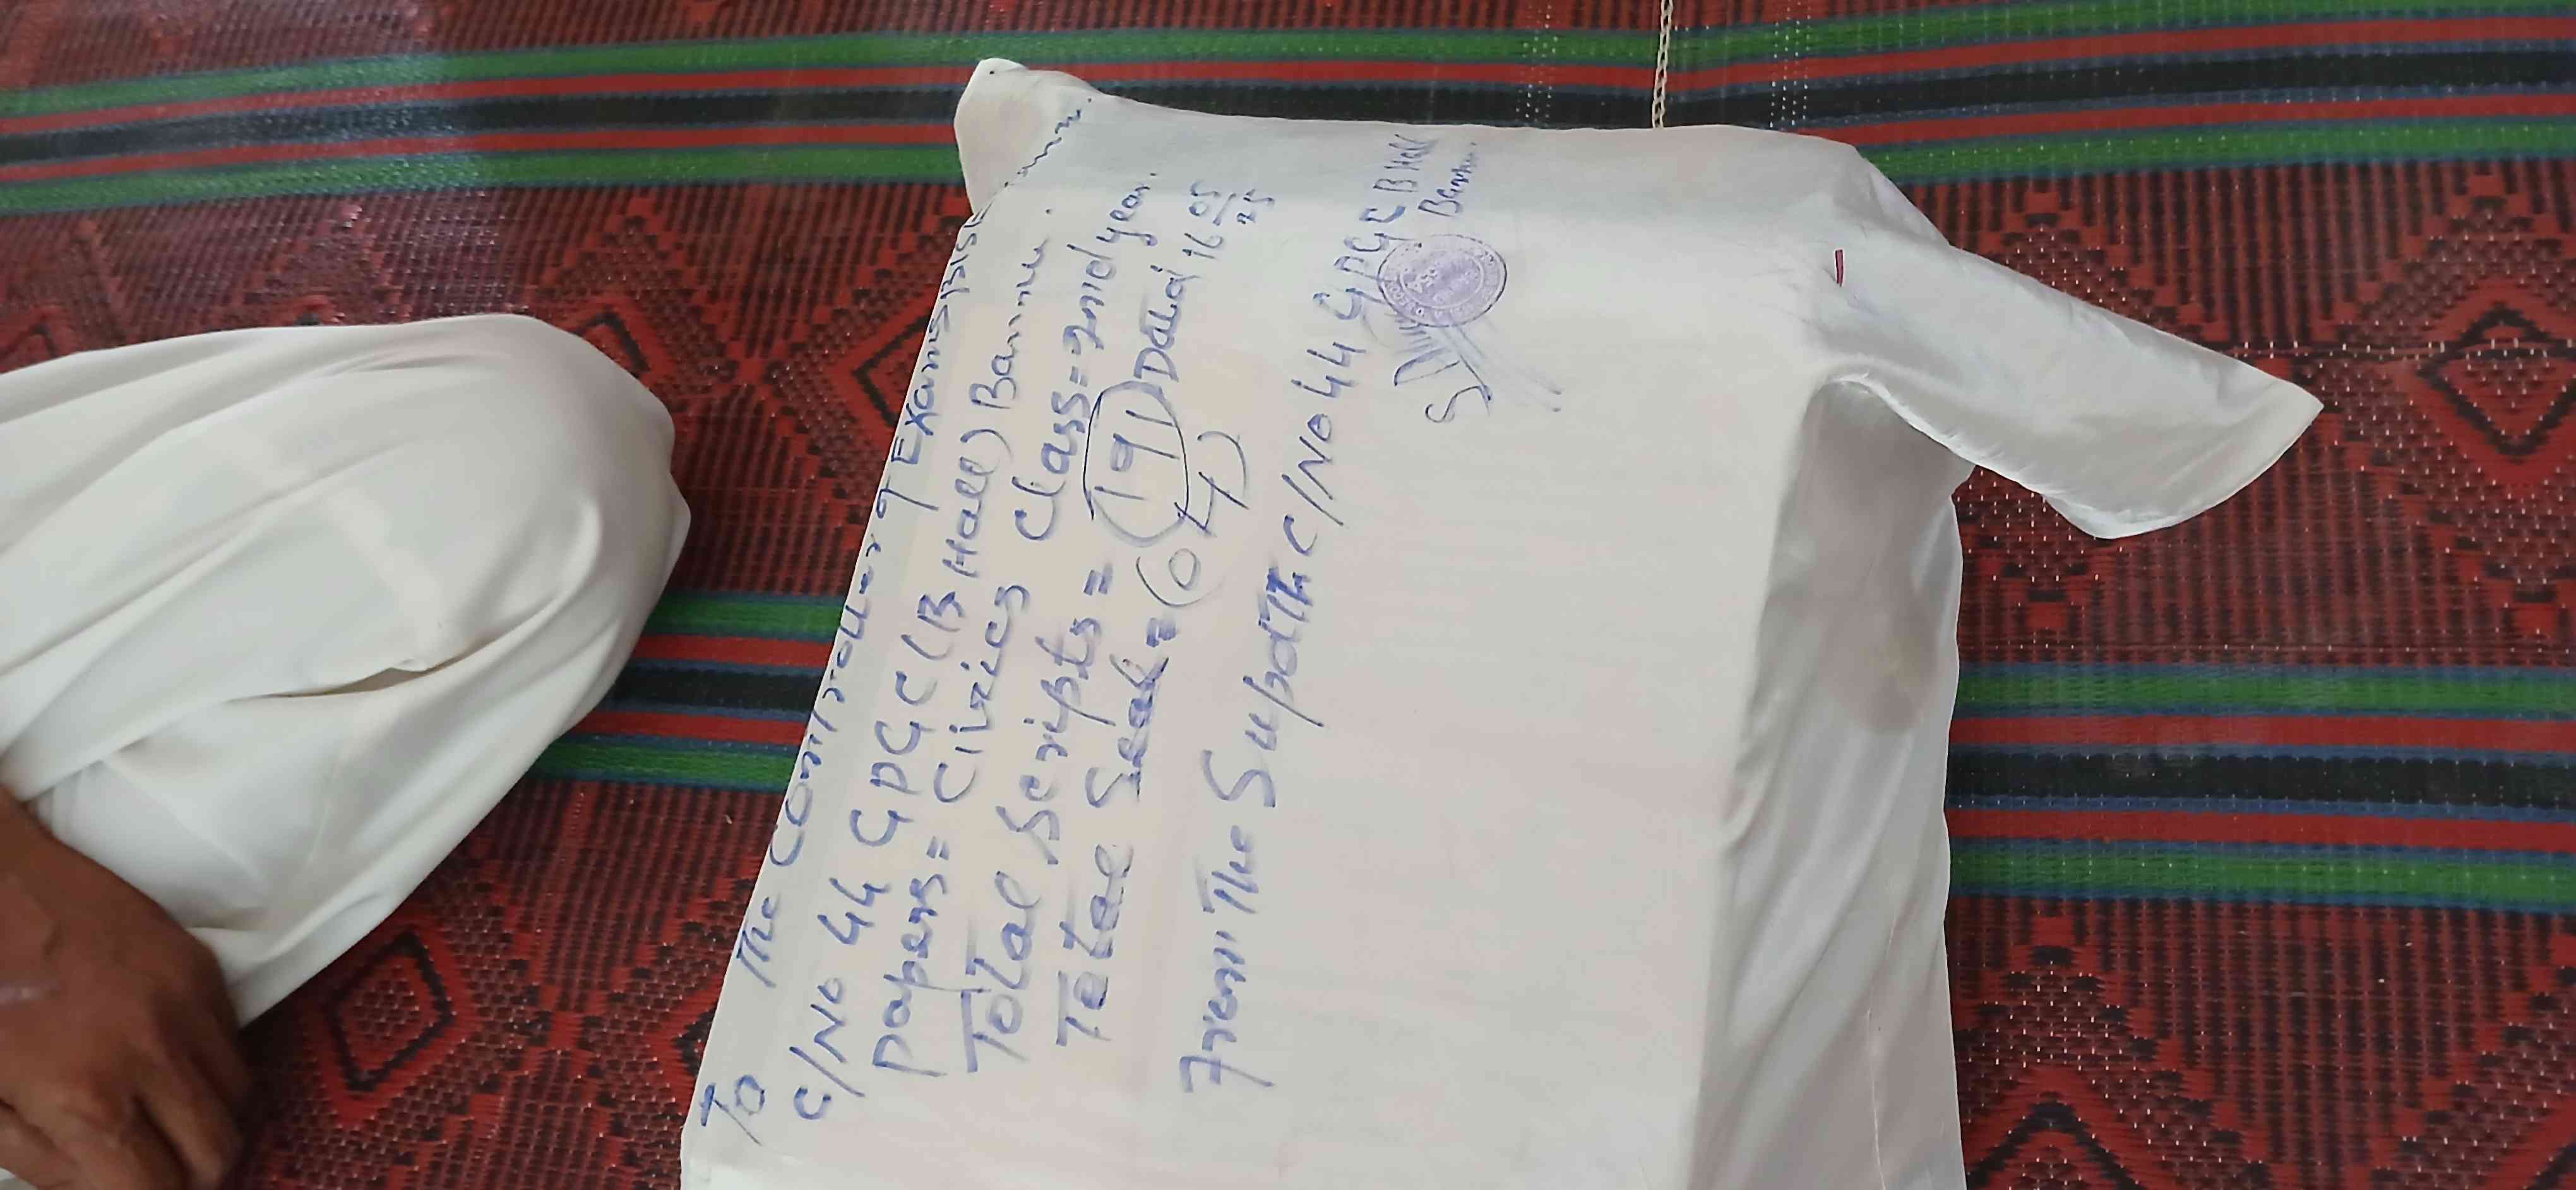 To The Controller of Exams BISE Bannu.
C/No 44 GPGC (B Hall) Bannu.
Papers = Civics Class = 2nd year.
Total Scripts = (191) Dated 16 05/25
Total Seal = (04)
From The Supdtt C/No 44 GPGC B Hall
Bannu.